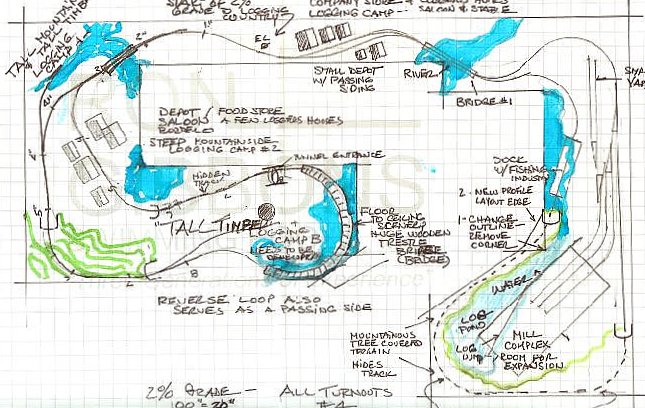 START OF 2%
GRADE TO LOGGING
COUNTRY
COMPANY STORE + LOGGERS HOMES
LOGGING CAMP -- SALOON & STABLE
TALL MOUNTAIN
TALL TIMBER
LOGGING
CAMP
EL
SMALL DEPOT
W/ PASSING
SIDING
RIVER
BRIDGE #1
DEPOT / FOOD STORE
SALOON A FEW LOGGERS HOUSES
BORDELO
STEEP MOUNTAINSIDE
LOGGING CAMP #2
TUNNEL ENTRANCE
HIDDEN
TRACK
"TALL TIMBER"
LOGGING
CAMP B
NEEDS TO BE
DEVELOPED
FLOOR
TO CEILING
SCENERY
HUGE WOODEN
TRESTLE
BRIDGE
(BRIDGE)
DOCK
W/ FISHING
INDUSTRY
2 - NEW PROFILE
LAYOUT EDGE
1 - CHANGE
OUTLINE -
REMOVE
CORNER
WATER
LOG
POND
LOG
DUMP
MILL
COMPLEX
ROOM FOR
EXPANSION
MOUNTAINOUS
TREE COVERED
TERRAIN
HIDES
TRACK
REVERSE LOOP ALSO
SERVES AS A PASSING SIDE
2% GRADE -
100" = 20"
ALL TURNOUTS
#4